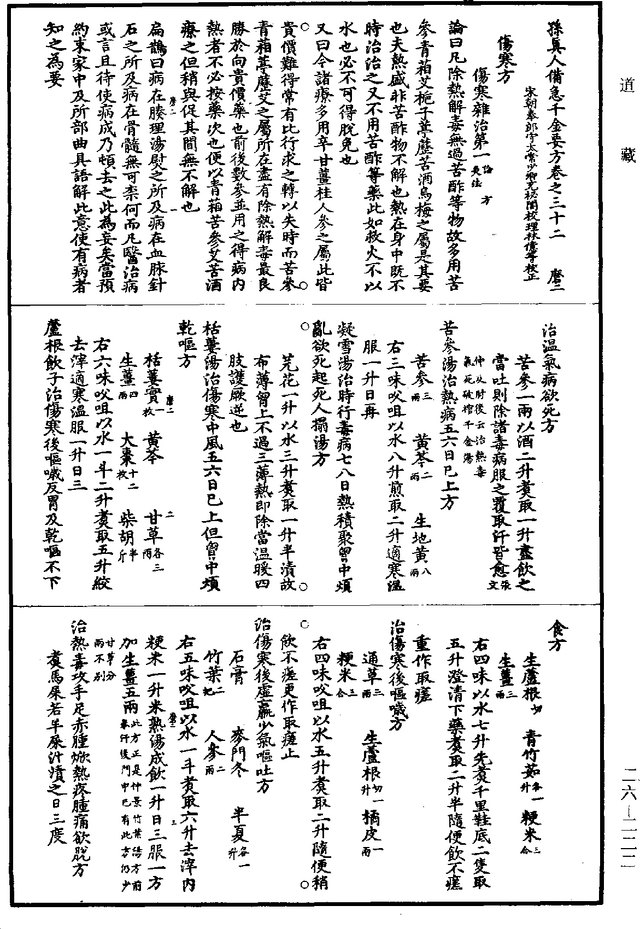 道藏
孫真人備急千金要方卷之三十二　磨二
宋朝奉郎守太常少卿充祕閣校理林億等校正
傷寒方
傷寒雜治第一 論一 方 灸法
論曰凡除熱解毒無過苦酢等物故多用苦
參青葙艾梔子葶藶苦酒烏梅之屬是其要
也夫熱盛非苦酢物不解也熱在身中既不
時治治之又不用苦酢等藥此如救火不以
水也必不可得脫免也
又曰今諸療多用辛甘薑桂人參之屬此皆
貴價難得常有比行求之轉以失時而苦參
青葙葶藶艾之屬所在盡有除熱解毒最良
勝於向貴價藥也前後數參並用之得病內
熱者不必按藥次也便以青葙苦參艾苦酒
療之但稍與促其間無不解也
扁鵲曰病在腠理湯熨之所及病在血脉針
石之所及病在骨髓無可柰何而凡醫治病
或言且待使病成乃頓去之此為妄矣當預
約束家中及所部曲具語解此意使有病者
知之為要
治溫氣病欲死方
苦參一兩以酒二升煑取一升盡飲之
當吐則除諸毒病服之覆取汗皆愈 張文
仲及肘後云治熱毒氣死破棺千金湯
苦參湯治熱病五六日已上方
苦參三兩　黃芩二兩　生地黃八兩
右三味㕮咀以水八升煎取二升適寒溫
服一升日再
凝雪湯治時行毒病七八日熱積聚胷中煩
亂欲死起死人搨湯方
芫花一升以水三升煑取一升半漬故
布薄胷上不過三薄熱即除當溫暖四
肢護厥逆也
栝蔞湯治傷寒中風五六日已上但胷中煩
乾嘔方
栝蔞實一枚　黃芩　甘草各三兩
生薑四兩　大棗十二枚　柴胡半斤
右六味㕮咀以水一斗二升煑取五升絞
去滓適寒溫服一升日三
蘆根飲子治傷寒後嘔噦反胃及乾嘔不下
食方
生蘆根切　青竹茹各一升　粳米三合
生薑三兩
右四味以水七升先煑千里鞋底二隻取
五升澄清下藥煑取二升半隨便飲不瘥
重作取瘥
治傷寒後嘔噦方
通草三兩　生蘆根切一升　橘皮一兩
粳米三合
右四味㕮咀以水五升煑取二升隨便稍
飲不瘥更作取瘥止
治傷寒後虛羸少氣嘔吐方
石膏　麥門冬　半夏各一升
竹葉二把　人參二兩
右五味㕮咀以水一斗煑取六升去滓內
粳米一升米熟湯成飲一升日三服一方
加生薑五兩 此方正是仲景竹葉湯方前
甘草分兩不別
治熱毒攻手足赤腫焮熱疼腫痛欲脫方
煑馬屎若羊屎汁漬之日三度
二六—二二二